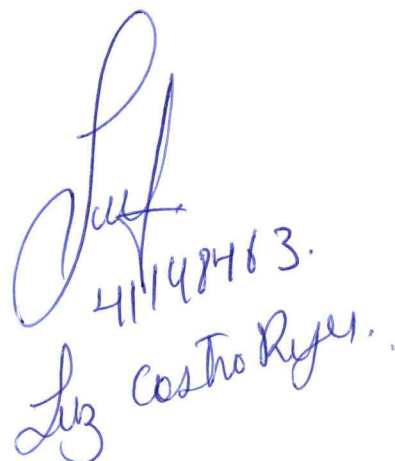 Luz
41148463.
Luz Castro Reyes.